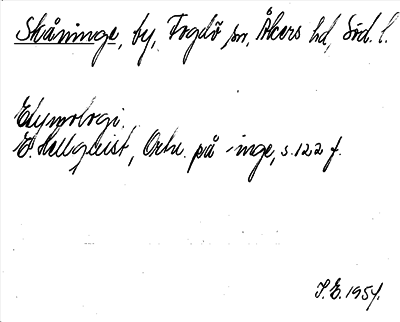 Skåninge, by, Fogdö sn, Åkers hd, Söd. l.
Etymologi.
E. Hellquist, Ortn. på -inge, s. 122 f.
I.E. 1954.